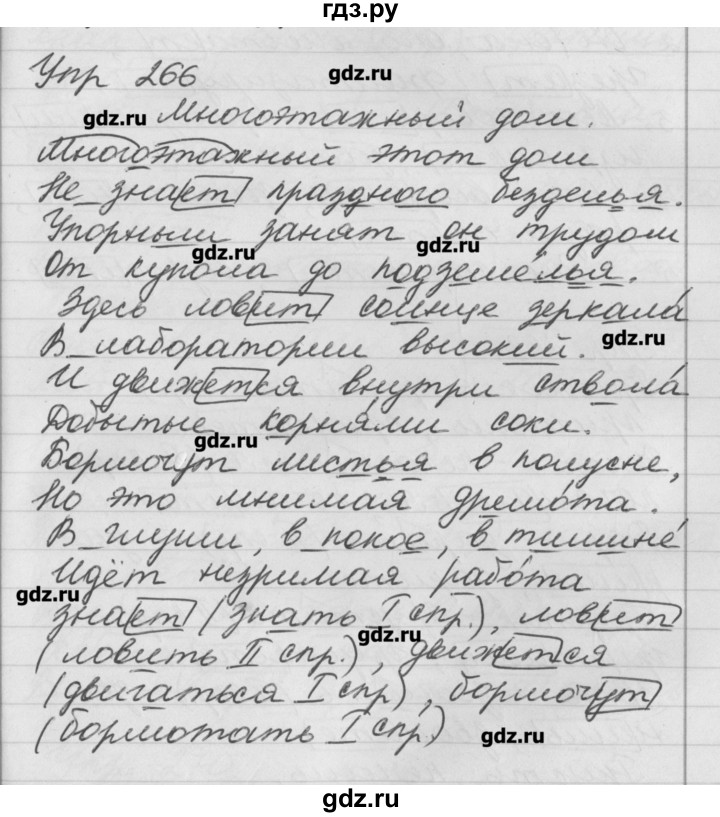 гдз.ру
Упр 266
gdz.ru
gdz.ru
Многоэтажный дом.
Многоэтажный этот дом
Не знает праздного безделья.
Упорным занят он трудом
gdz.ru
gdz.ru
От купола до подземелья.
Здесь ловит солнце зеркала
gdz.ru
В лаборатории высокий.
И движется внутри ствола
Добытые корнями соки.
gdz.ru
Бормочут листья в полусне,
Но это мнимая дремота.
В глуши, в покое, в тишине
Идёт незримая работа
gdz.ru
знает (знать I спр.), ловит
gdz.ru
(ловить II спр.), движется
(двигаться I спр), бормочут
(бормотать I спр)
gdz.ru
gdz.ru